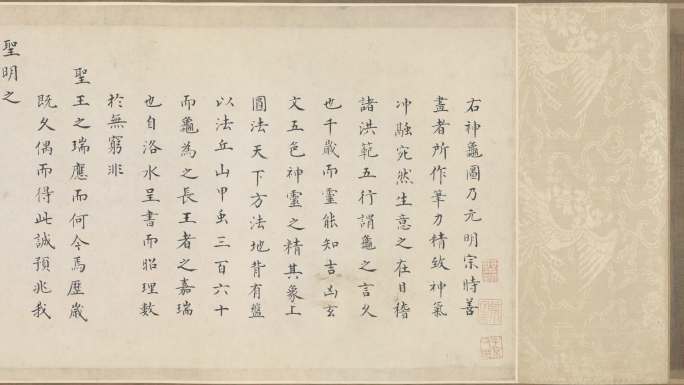 右神龜圖乃元明宗時善
畫者所作筆力精致神氣
冲融宛然生意之在目稽
諸洪範五行謂龜之言久
也千歲而靈能知吉凶玄
文五色神靈之精其象上
圓法天下方法地背有盤
以法丘山甲虫三百六十
而龜為之長王者之嘉瑞
也自洛水呈書而昭理數
於無窮非
聖王之瑞應而何今焉歷歲
既久偶而得此誠預兆我
聖明之